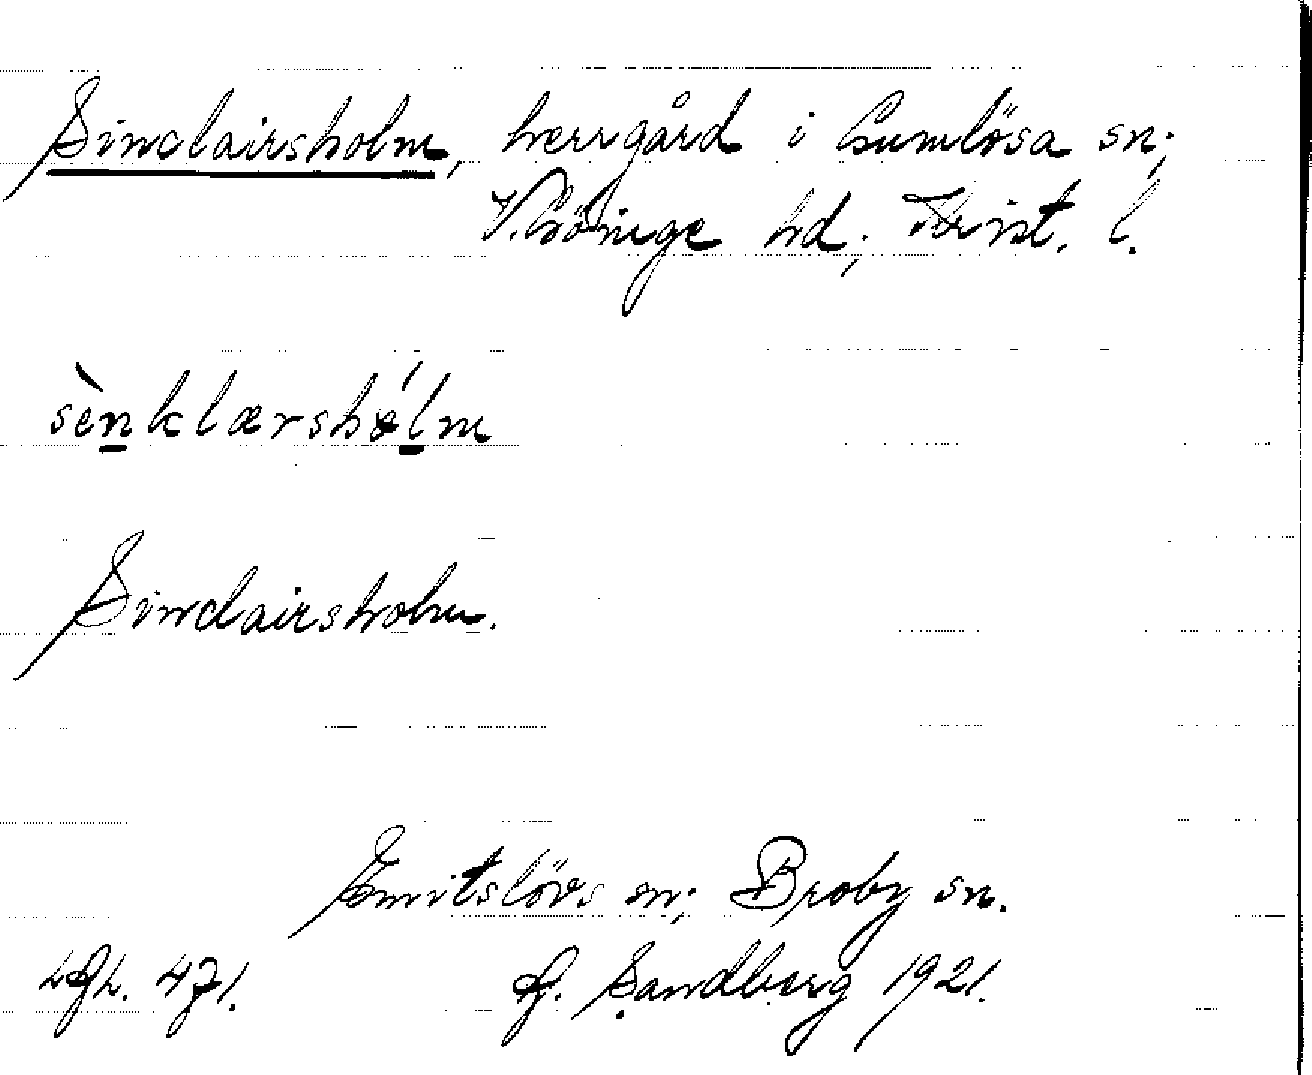 Sinclairsholm, herrgård i Gumlösa sn;
V. Göinge hd; Krist. l.
sènklærshólm
Sinclairsholm.
Emitslövs sn; Broby sn.
471.
Sandberg 1921.